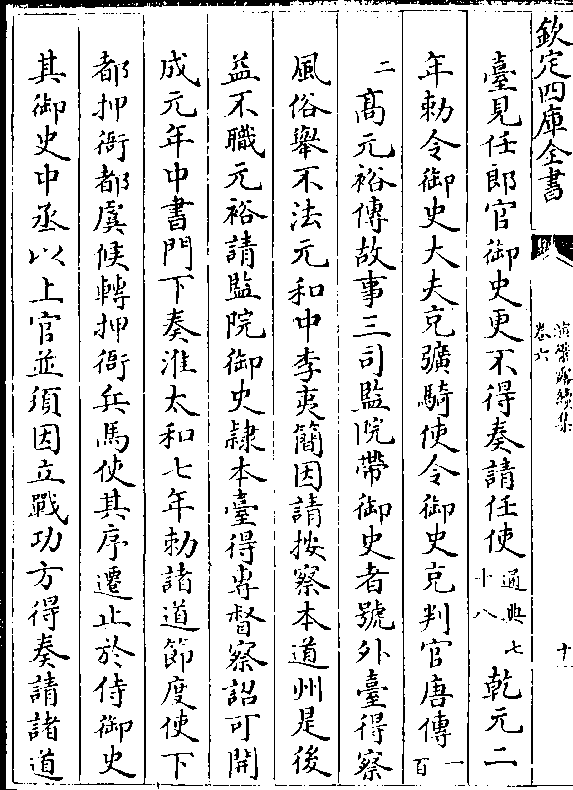 欽定四庫全書
演繁露續集
卷六
十一
臺見任郎官御史更不得奏請任使通典七十八乾元二
年勅令御史大夫充彍騎使令御史充判官唐傳一百
二高元裕傳故事三司監院帶御史者號外臺得察
風俗舉不法元和中李夷簡因請按察本道州是後
益不職元裕請監院御史隸本臺得專督察詔可開
成元年中書門下奏淮太和七年勅諸道節度使下
都押衙都虞候轉押衙兵馬使其序遷止於侍御史
其御史中丞以上官並須因立戰功方得奏請諸道